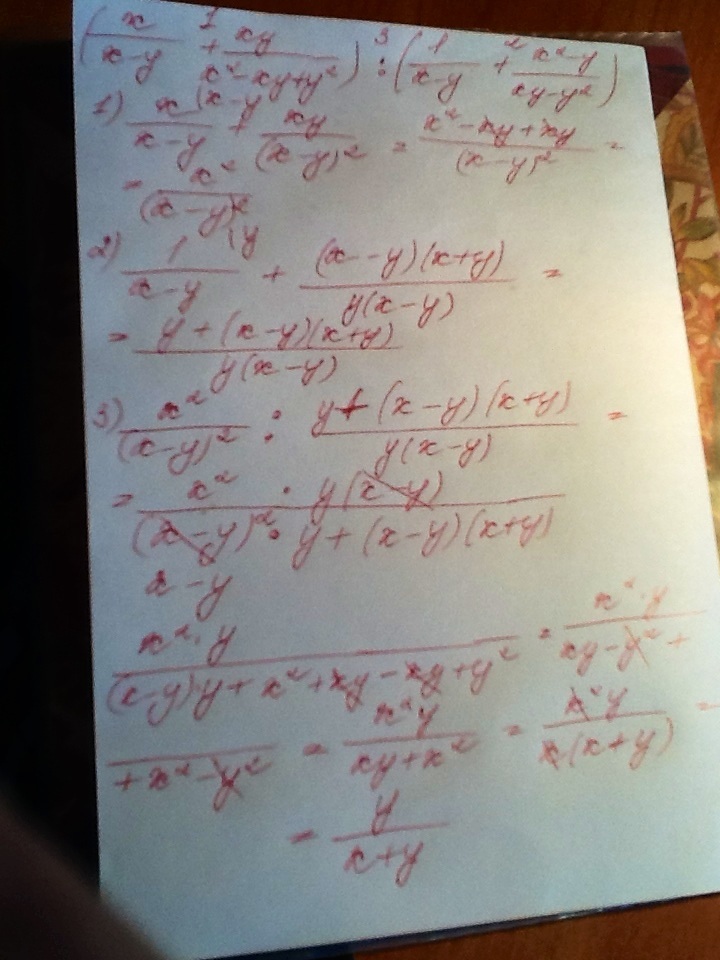 (x/(x-y) +¹ xy/(x²-xy+y²)) :³ (1/(x-y) +² (x²-y)/(xy-y²))
1) x(x-y/(x-y) + xy/(x-y)² = (x²-xy+xy)/(x-y)² =
= x²/(x-y)²
2) 1(y/(x-y) + (x-y)(x+y)/y(x-y) =
= (y+(x-y)(x+y))/y(x-y)
3) x²/(x-y)² : (y+(x-y)(x+y))/y(x-y) =
= x² · y(x-y)/(x-y)² · y+(x-y)(x+y)
x-y
x²·y/(x-y)y+x²+xy-xy+y² = x²·y/xy-y²+
+x²-y² = x²y/(xy+x²) = x²y/x(x+y) =
= y/(x+y)